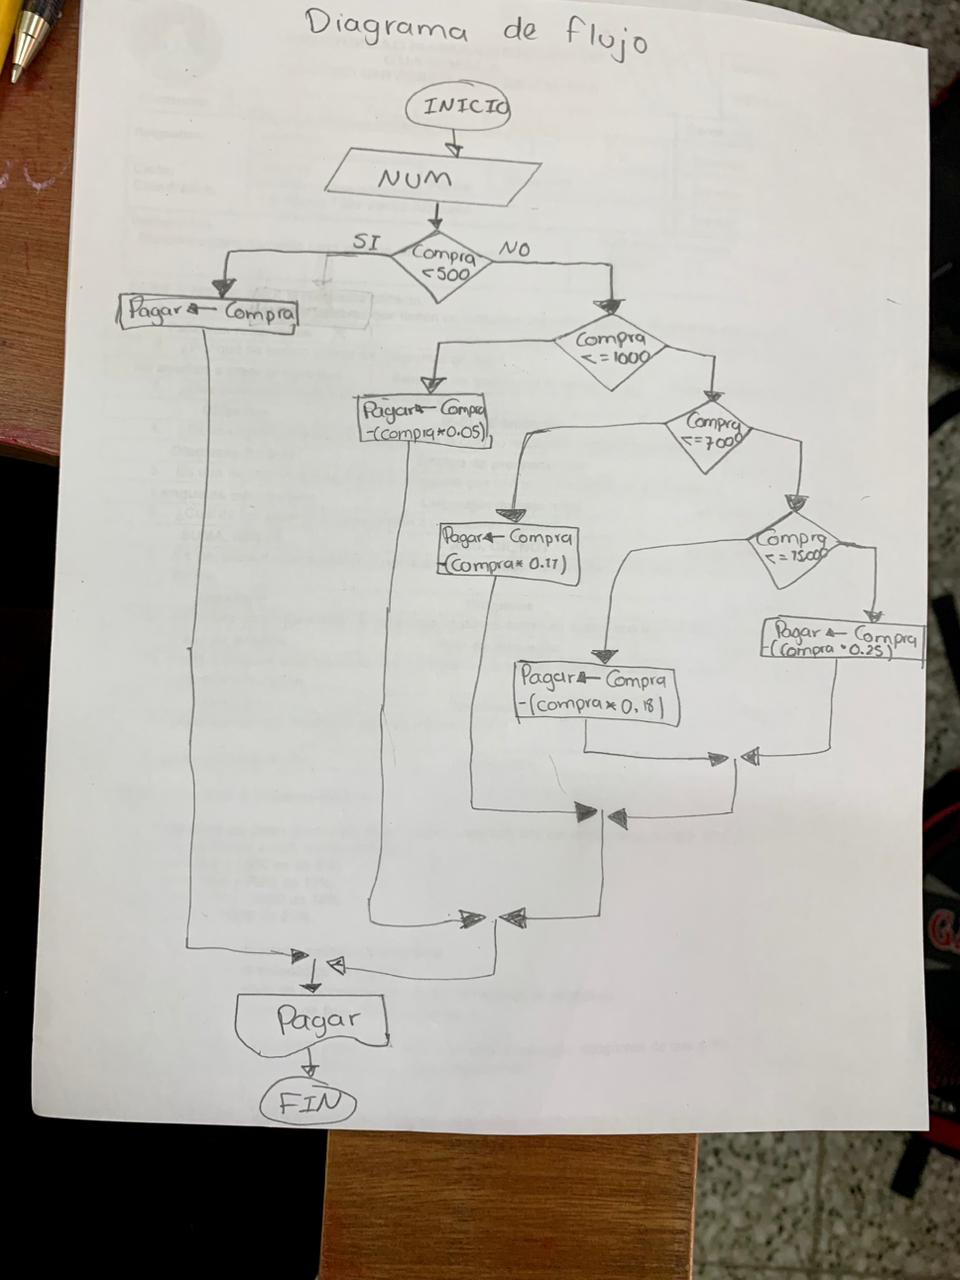 Diagrama de flujo
INICIO
NUM
SI
NO
Compra
<500
Pagar ← Compra
Compra
<=1000
Pagar ← Compra
-(compra*0.05)
Compra
<=7000
Pagar ← Compra
-(compra* 0.11)
Compra
<=15000
Pagar ← Compra
-(compra*0.25)
Pagar ← Compra
-(compra* 0.18)
Pagar
FIN